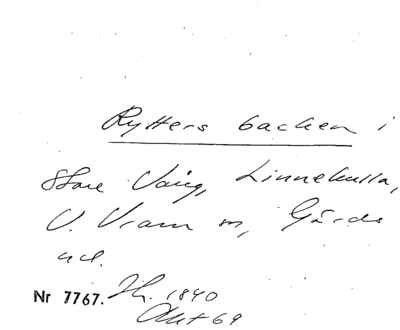 Rytters backen i
Stora Vång, Linnekulla,
V. Vram sn, Gärds
hd.
Nr 7767. Th. 1840
Akt 69